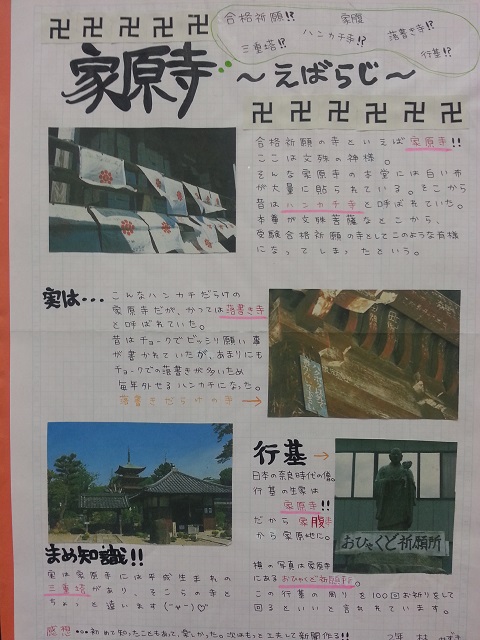 卍 卍 卍 卍 卍 卍
合格祈願!?
家腹
落書き寺!?
三重塔!?
ハンカチ寺!?
行基!?
家原寺
~えばらじ~
卍 卍 卍 卍 卍 卍
合格祈願の寺といえば家原寺!!
ここは文殊の神様。
そんな家原寺の本堂には白い布
が大量に貼られている。そこから
昔はハンカチ寺と呼ばれていた。
本尊が文殊菩薩なとこから、
受験合格祈願の寺としてこのような有様
になってしまったという。
実は・・・
こんなハンカチだらけの
家原寺だが、かつては落書き寺
と呼ばれていた。
昔はチョークでビッシリ願い事
が書かれていたが、あまりにも
チョークでの落書きが多いため
毎年外せるハンカチになった。
落書きだらけの寺→
行基→
日本の奈良時代の僧。
行基の生家は
家原寺!!
だから家腹寺
から家原地に。
おひゃくど祈願所
まめ知識!!
実は家原寺には平成生まれの
三重塔があり、そこらの寺と
ちょっと違います(˘ᵕ˘)♡
横の写真は家原寺
にあるおひゃくど祈願所。
この行基の周りを100回お祈りをして
回るといいと言われています。
感想・・・初めて知ったこともあって、楽しかった。次はもっと工夫して新聞作る!!
2年